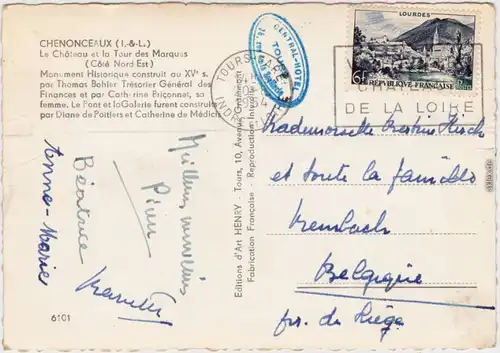 CHENONCEAUX (I.-&L.)
Le Château et la Tour des Marques
(Côté Nord Est)
Monument Historique construit au XVe s.
par Thomas Bohier Trésorier Général des
Finances et par Catherine Briçonnet, sa
femme. Le Pont et la Galerie furent construits
par Diane de Poitiers et Catherine de Médicis
Meilleurs souvenirs
Pierre
Béatrice
Anne-Marie
6101
Editions d'Art HENRY - Tours, 10, Avenue
Fabrication Française Reproduction
CENTRAL-HOTEL
TOURS
TOURS GARE
1954
LOURDES
6F RÉPUBLIQUE FRANÇAISE
DE LA LOIRE
Mademoiselle
et toute la famille
Membach
Belgique
pr. de Liège